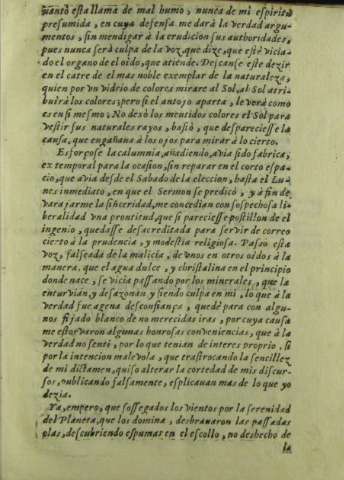 uianto esta llama de mal humo, nunca de mi espiritu
presumida, en cuya defensa me darà la verdad argu-
mentos, sin mendigar à la erudicion sus authoridades,
pues nunca serà culpa de la voz, que dize, que estè vicia-
do el organo de el oido, que atiende. Descanse este dezir
en el catre de el mas noble exemplar de la naturaleza,
quien por un vidrio de colores mirare al Sol, al Sol atri-
buirà los colores; pero si el antojo aparta, le verà como
es en si mesmo; No dexò los mentidos colores el Sol para
vestir sus naturales rayos, bastò, que despareciesse la
causa, que engañaba à los ojos para mirar à lo cierto.
Esforçose la calumnia, añadiendo, avia sido fabrica,
ex temporal para la ocasion, sin reparar en el corto espa-
cio, que avia desde el Sabado de la eleccion, hasta el Lu-
nes inmediato, en que el Sermon se predicò, y à fin de
vararjarme la sinceridad, me concedian con sospechosa li-
beralidad una promtitud, que si pareciesse postillon de el
ingenio, quedasse desacreditada para servir de correo
cierto à la prudencia, y modestia religiosa. Passò esta
voz, falseada de la malicia, de unos en otros oidos à la
manera, que el agua dulce, y christalina en el principio
donde nace, se vicia passando por los minerales, que la
enturvian, y desazonan y siendo culpa en mi, lo que à la
verdad fue agena desconfiança, quedè para con algu-
nos fijado blanco de no merecidas iras, por cuya causa
me estorvaron algunas honrosas conveniencias, que à la
verdad no senti, por lo que tenian de interes proprio, si
por la intencion malevola, que trastrocando la sencillez
de mi dictamen, quiso alterar la cortedad de mis discur-
sos, publicando falsamente, esplicauan mas de lo que yo
dezia.
Ya, empero, que sossegados los vientos por la serenidad
del Planeta, que los domina, desbravaron las passadas
olas, descubriendo espumar en el escollo, no deshecho de
la